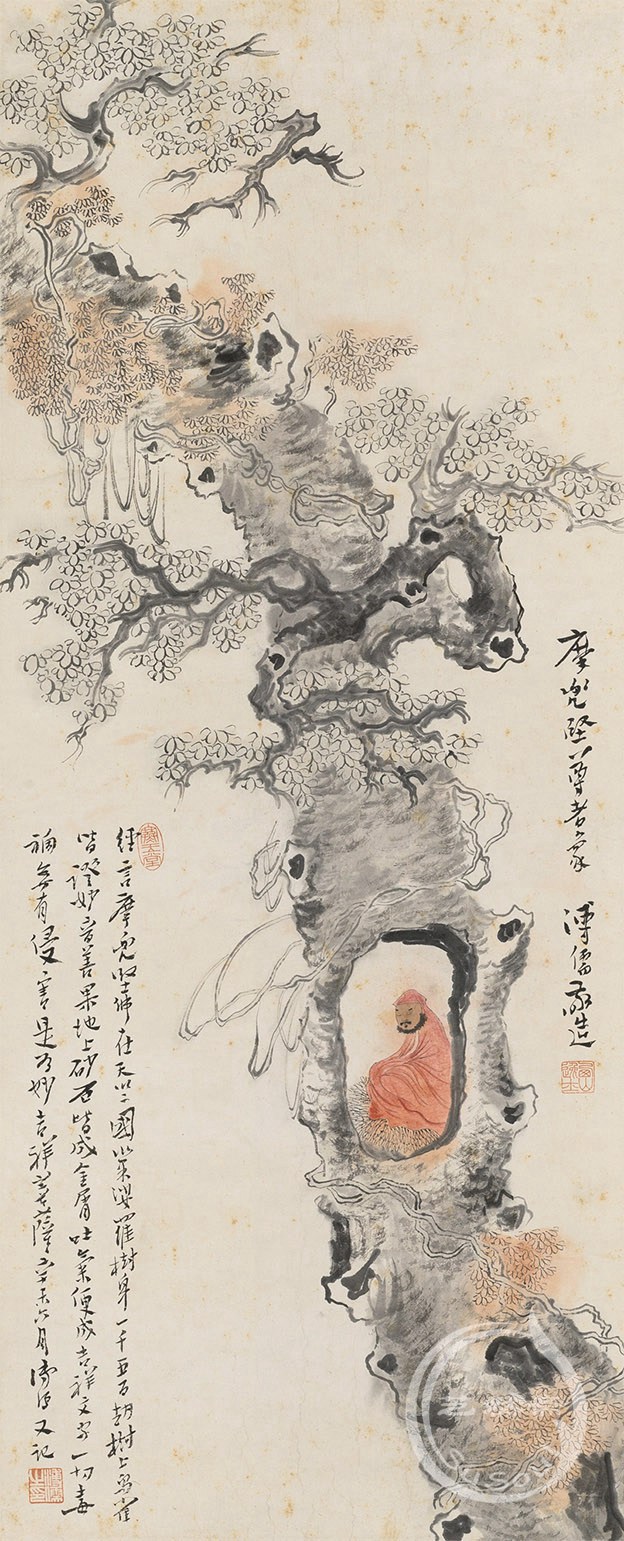 摩兜堅尊者象 溥儒敬造
西山逸士
寒玉堂
經言摩兜在天竺國坐娑羅樹身一千五百劫樹上鳥雀
皆證妙音善果地上砂石皆成金屑吐氣便成吉祥文字一切毒
禍無有侵害是为妙吉祥菩薩辛未六月溥儒又記
溥儒之印